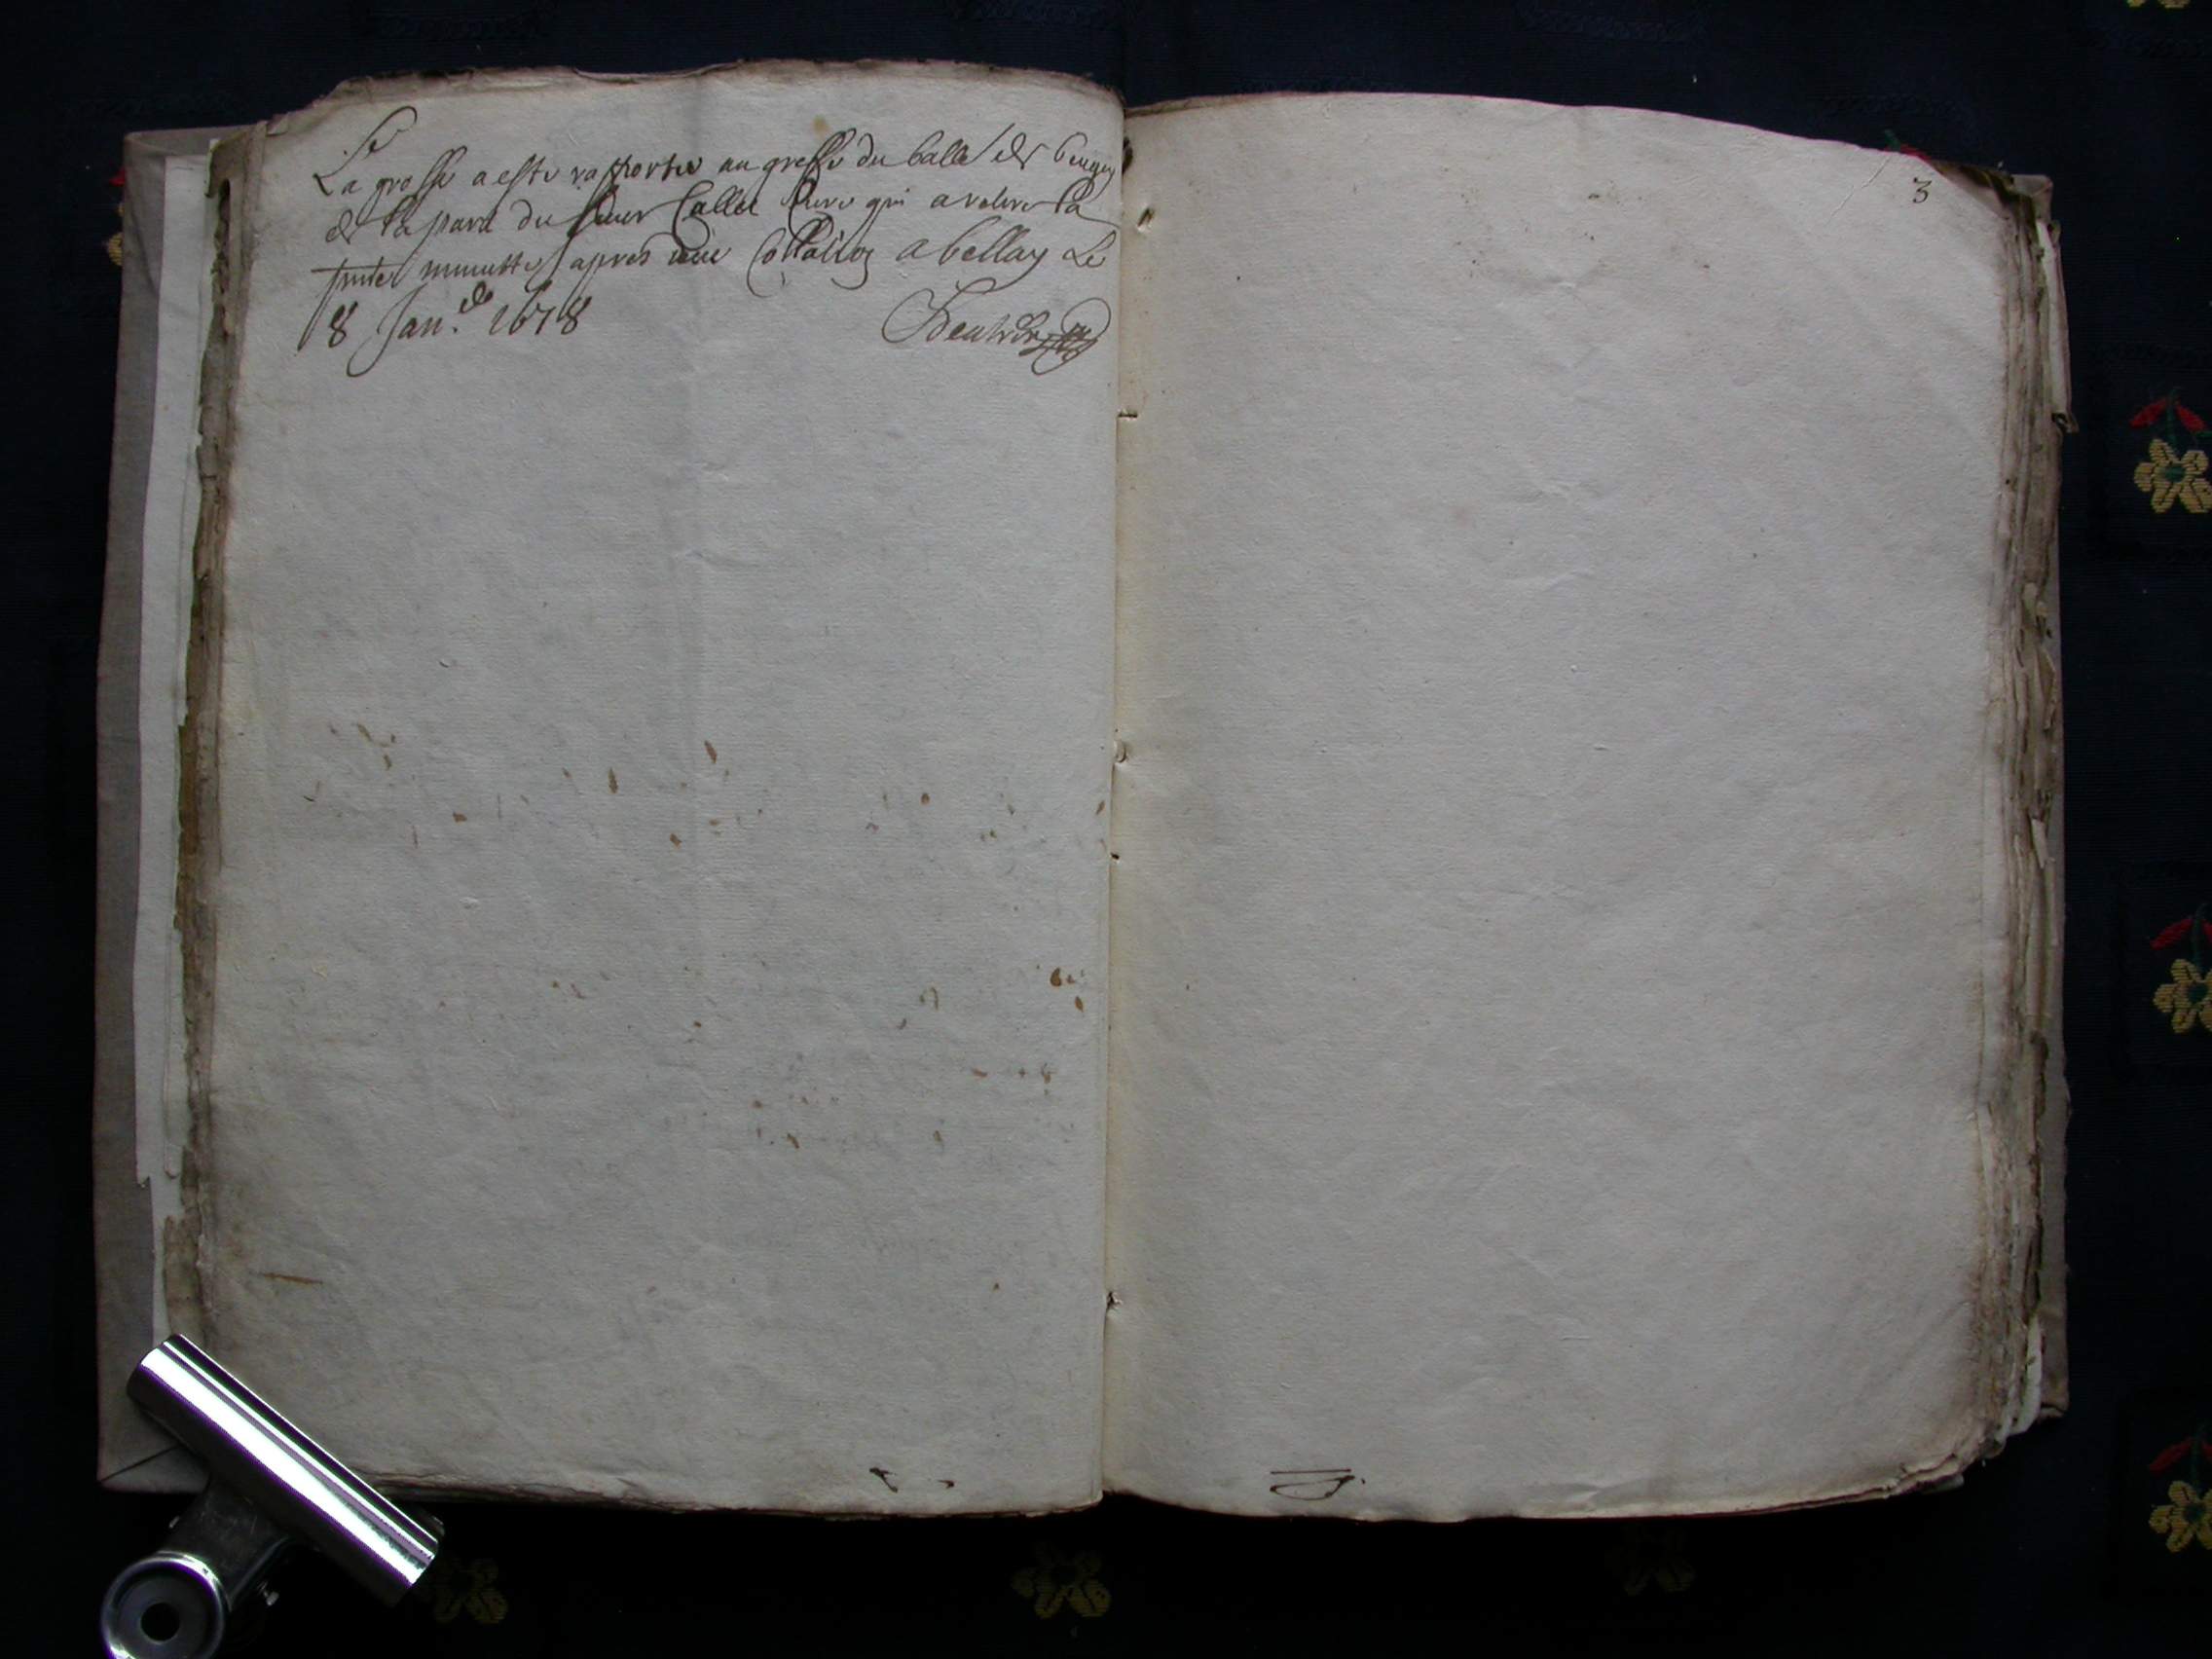 La grosse a este rapportee au greffe du balle de beugey
de la part du sieur Callet Cure qui a retire la
pnte minutte apres due Collaôn a bellay Le
8 Jan.er 1678
3